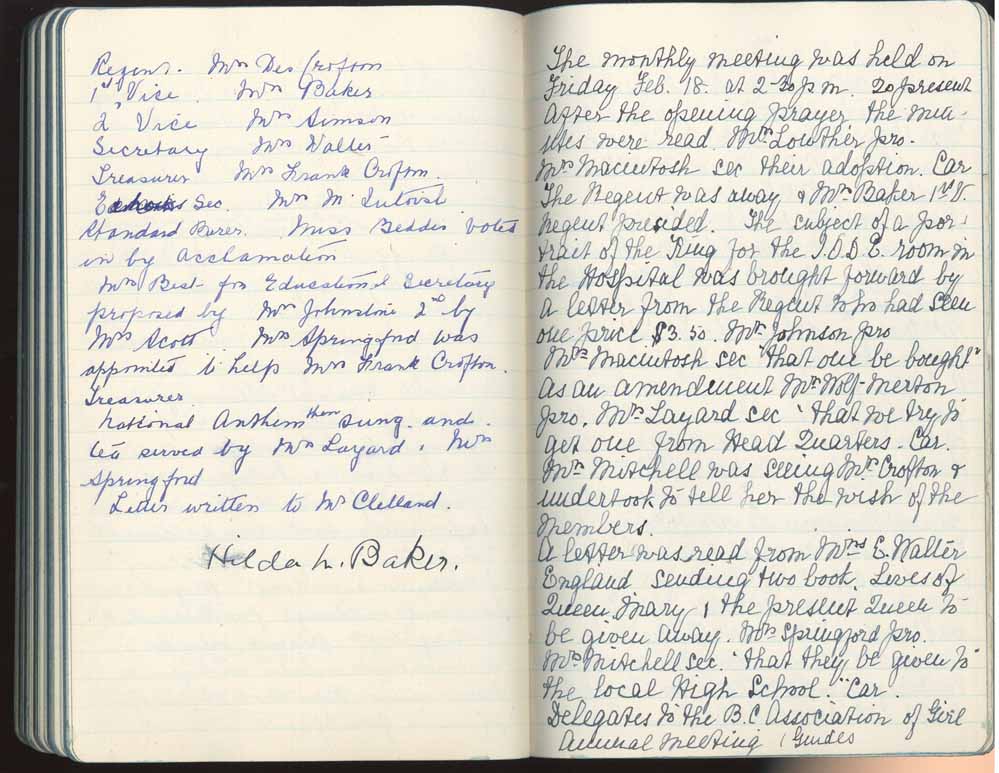 Regent. Mrs Des Crofton
1st Vice. Mrs Baker
2 Vice Mrs Simson
Secretary Mrs Walter
Treasurer Mrs Frank Crofton.
Sec. Mrs M.
Standard Barer. Miss Geddes voted
in by acclamation
Mrs Best for Educational Secretary
proposed by Mrs Johnstone 2nd by
Mrs Scott. Mrs Springford was
appointed to help Mrs Frank Crofton.
Treasurer
National Anthem then sung and
tea served by Mrs Layard, Mrs
Springford
Letter written to Mr Clelland.
Hilda L. Baker.
The monthly meeting was held on
Friday Feb. 18. at 2-30 p.m. 20 present
After the opening prayer the min-
utes were read. Mrs Lowther pro.
Mrs Macintosh sec their adoption. Car
The Regent was away & Mrs Baker 1st V.
Regent presided. The subject of a por-
trait of the King for the I.O.D.E. room in
the Hospital was brought forward by
a letter from the Regent who had seen
one price $3.50. Mrs Johnson pro
Mrs Macintosh sec "that one be bought"
as an amendment Mrs Wolf-Merton
pro. Mrs Layard sec "that we try to
get one from Head Quarters. Car.
Mrs Mitchell was seeing Mrs Crofton &
undertook to tell her the wish of the
members.
A letter was read from Mrs E. Walter
England sending two book. Lives of
Queen Mary & the present Queen to
be given away. Mrs Springford pro.
Mrs Mitchell sec. "that they be given to
the local High School." Car.
Delegates to the B.C. Association of Girl
Annual meeting (Guides